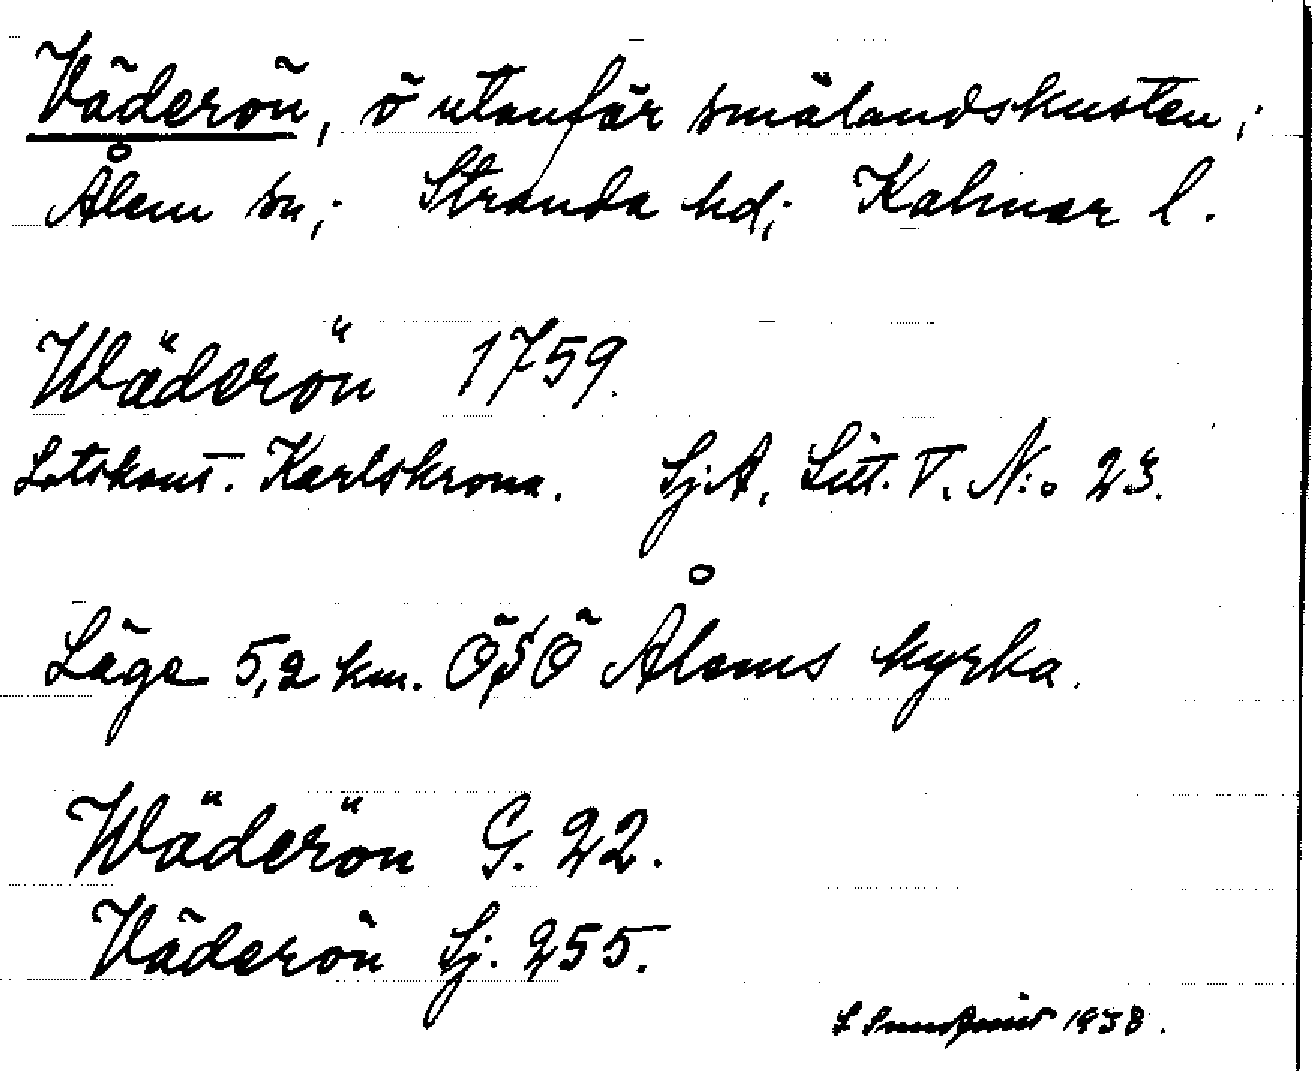 Väderön, ö utanför smålandskusten;
Ålem sn; Stranda hd; Kalmar l.
Wäderön 1759.
Lotskont. Karlskrona. Sj.A. Litt. V. N:o 23.
Läge 5,2 km. ÖSÖ Ålems kyrka.
Wäderön G. 22.
Väderön Sj. 255.
1938.